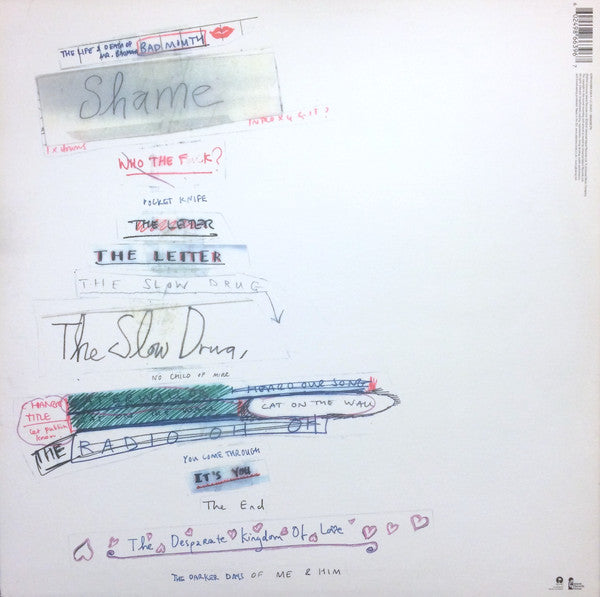 THE LIFE & DEATH OF
MR. BADMOUTH
Shame
INTRO X 4 GIT?
1 X HOWWS
WHO THE F ck?
POCKET KNIFE
THE LETTER
THE LETTER
THE SLOW DRUG
The Slow Drug,
NO CHILD OF MINE
HEARD OUR SONG
CHANGE
TITLE
CAT ON THE WALL
THE RADIO OH OH
YOU COME THROUGH
IT'S YOU
The End
The Desparate Kingdom Of Love
THE DARKER DAYS OF ME & HIM